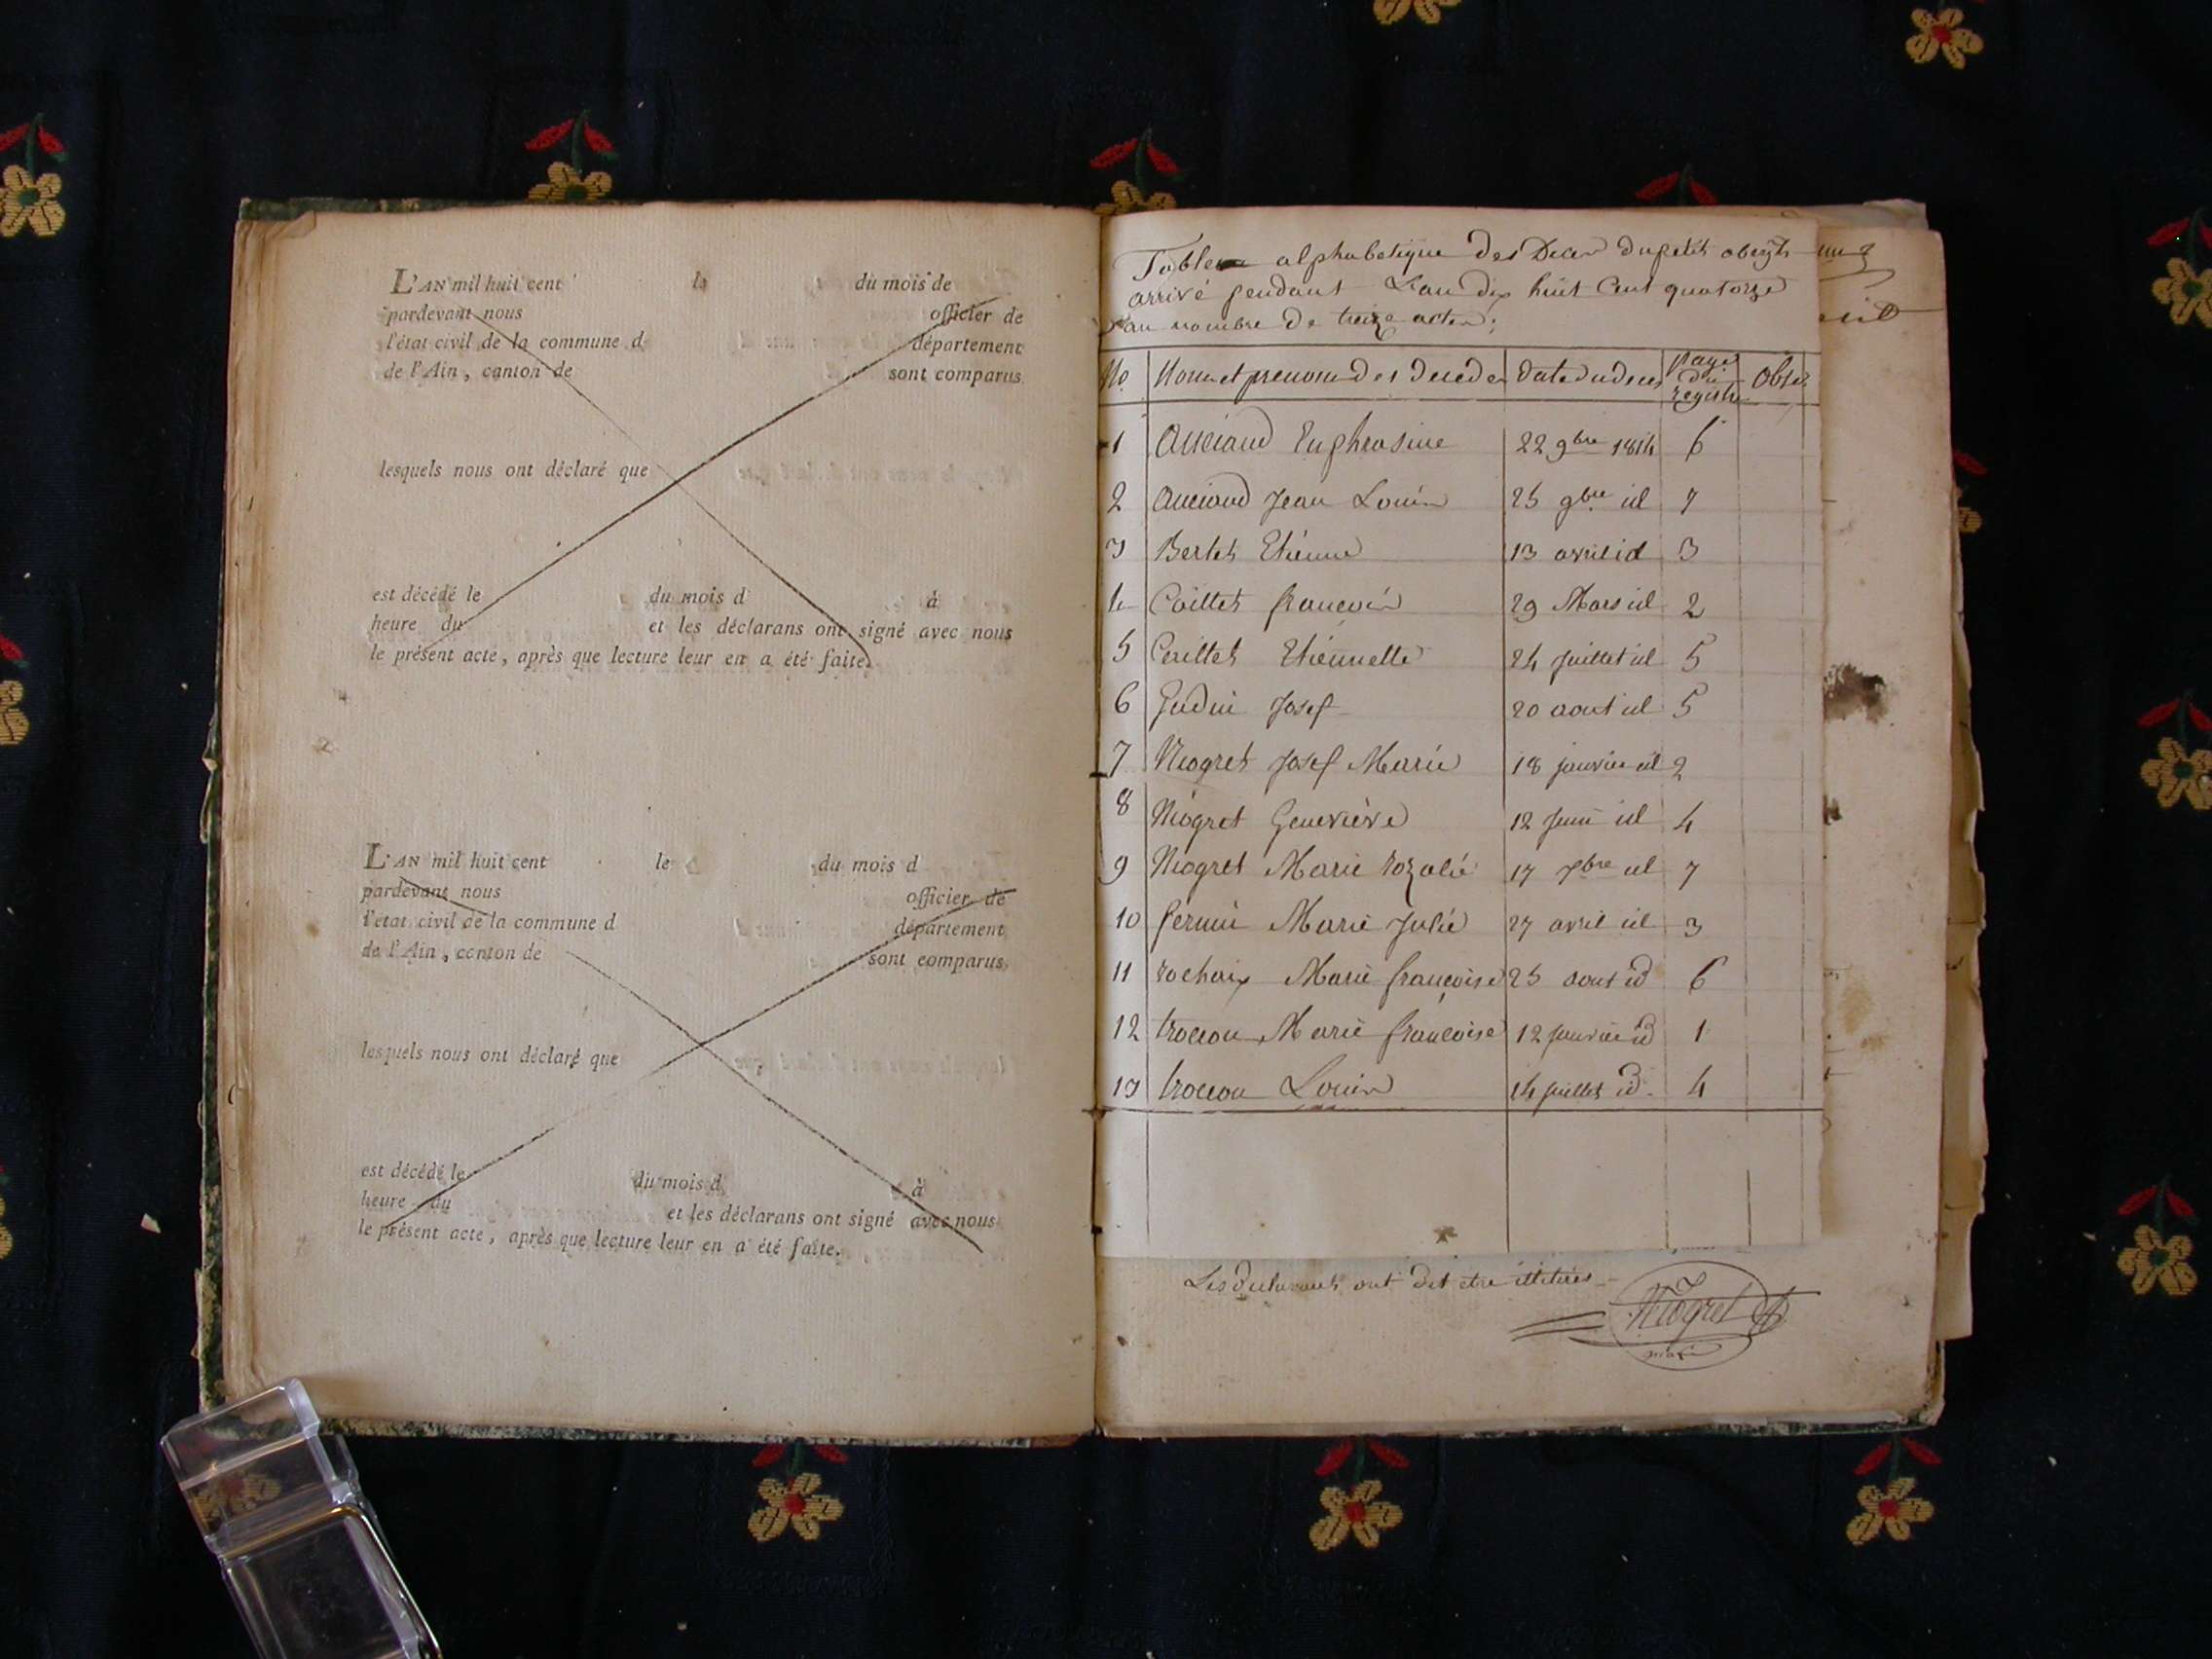 L'AN mil huit cent le du mois de
pardevant nous officier de
l'état civil de la commune d département
de l'Ain, canton de sont comparus
lesquels nous ont déclaré que
est décédé le du mois d à
heure du et les déclarans ont signé avec nous
le présent acte, après que lecture leur en a été faite.
L'AN mil huit cent le du mois d
pardevant nous officier de
l'état civil de la commune d département
de l'Ain, canton de sont comparus
lesquels nous ont déclaré que
est décédé le du mois d à
heure du et les déclarans ont signé avec nous
le présent acte, après que lecture leur en a été faite.
Table alphabetique des Deces du petit abergt
arrivé pendant L'an dix huit Cent quatorze
au nombre de treize actes;
No Nom et prenom des decedes date du deces page du registre Obser
1 Anciand Euphrosine 22 9bre 1814 6
2 Anciand Jean Louis 25 9bre id 7
3 Bertet Etienne 13 avril id 3
4 Caillet francois 29 Mars id 2
5 Caillet Etiennette 24 Juillet id 5
6 Judin Josef 20 aout id 5
7 Niogret Josef Marie 18 janvier id 2
8 Niogret Geneviève 12 Juin id 4
9 Niogret Marie rozalie 17 Xbre id 7
10 Marie Julie 27 avril id 3
11 rochaix Marie françoise 25 aout id 6
12 troccon Marie françoise 12 janvier id 1
13 troccon Louis 14 Juillet id 4
Les declarants ont dit etre illitires
Niogret
maire